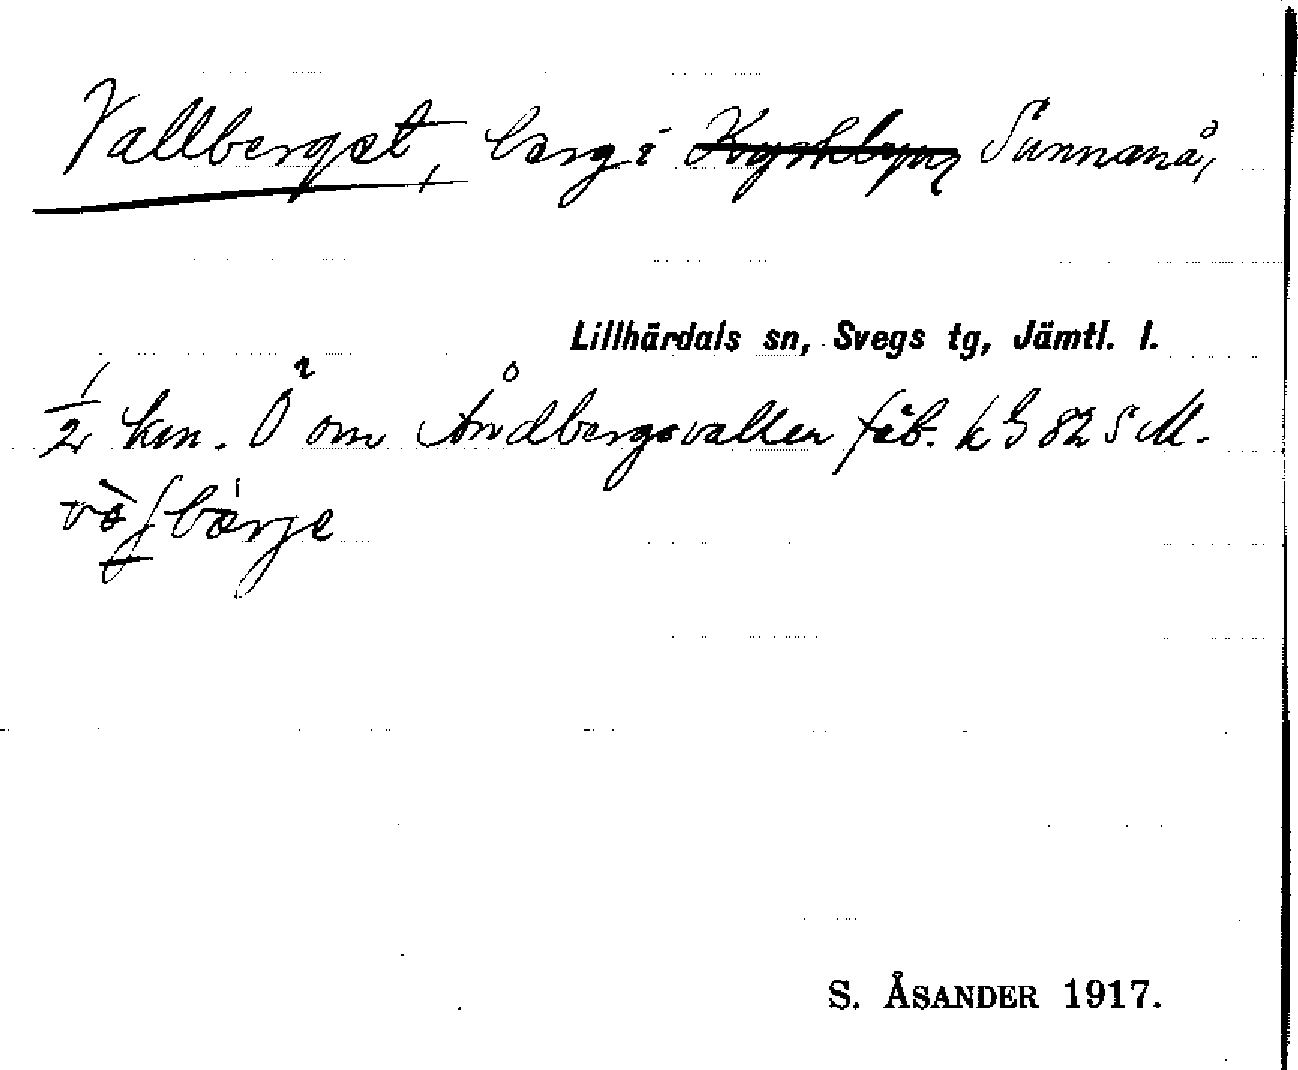 Vallberget, berg i Kyrkbyn, Sunnanå,
Lillhärdals sn, Svegs tg, Jämtl. l.
1/2 km. Ö om Åndbergsvallen fäb. k G 82 S M.
bærje
S. ÅSANDER 1917.